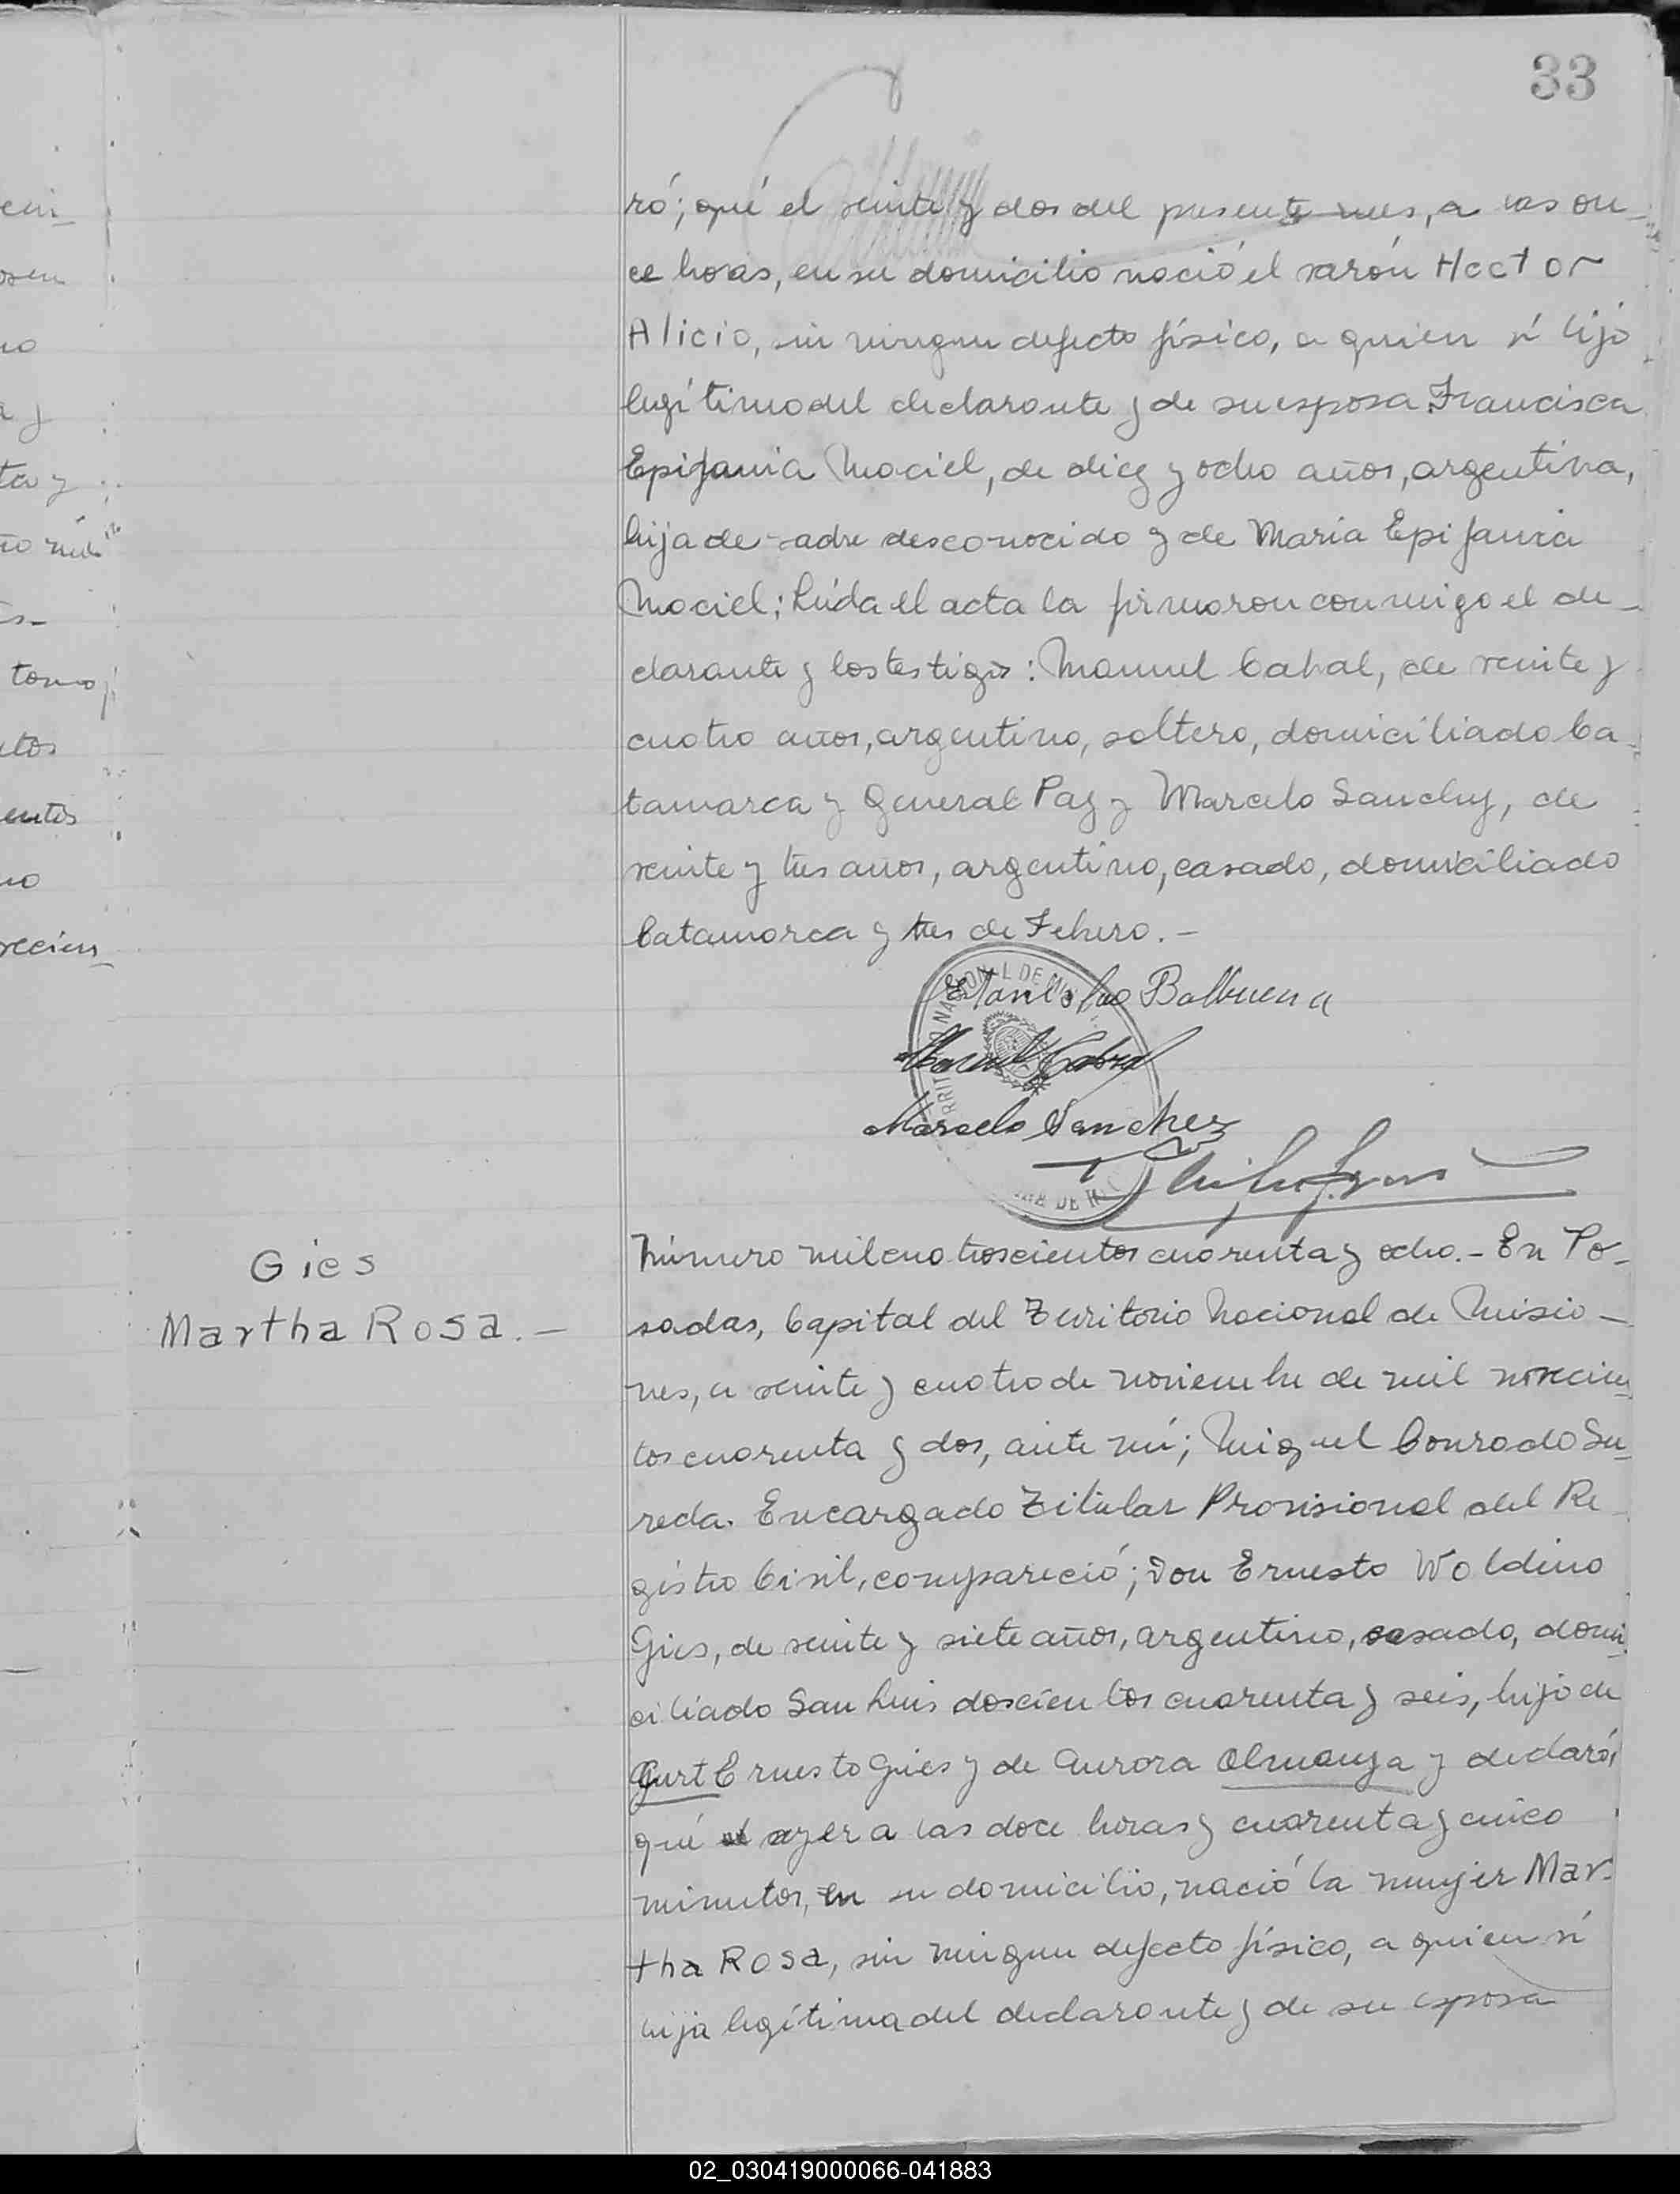 33
ró; qué el veinte y dos del presente mes, a las on-
ce horas, en su domicilio nació el varón Hector
Alicio, sin ningun defecto físico, a quien ví hijo
legítimo del declarante y de su esposa Francisca
Epifania Maciel, de diez y ocho años, argentina,
hija de padre desconocido y de Maria Epifania
Maciel; Leída el acta la firmaron conmigo el de-
clarante y los testigos: Manuel Cabral, de veinte y
cuatro años, argentino, soltero, domiciliado Ca-
tamarca y General Paz y Marcelo Sanchez, de
veinte y tres años, argentino, casado, domiciliado
Catamarca y tres de Febrero.-
Estanislao Balbuena
Manuel Cabral
Marcelo Sanchez
Gies
Martha Rosa.-
Número mil cuatroscientos cuarenta y ocho.- En Po-
sadas, Capital del Territorio Nacional de Misio-
nes, a veinte y cuatro de noviembre de mil novecien-
tos cuarenta y dos, ante mí; Miguel Conrado Su-
reda. Encargado Titular Provisional del Re-
gistro Civil, compareció; Don Ernesto Woldino
Gies, de veinte y siete años, argentino, casado, domi-
ciliado San Luis doscientos cuarenta y seis, hijo de
Gurt Ernesto Gies y de Aurora Olmanza y declaró;
qué ayer a las doce horas y cuarenta y cinco
minutos, en su domicilio, nació la mujer Mar-
tha Rosa, sin ningun defecto físico, a quien ví
hija legítima del declarante y de su esposa
02_030419000066-041883